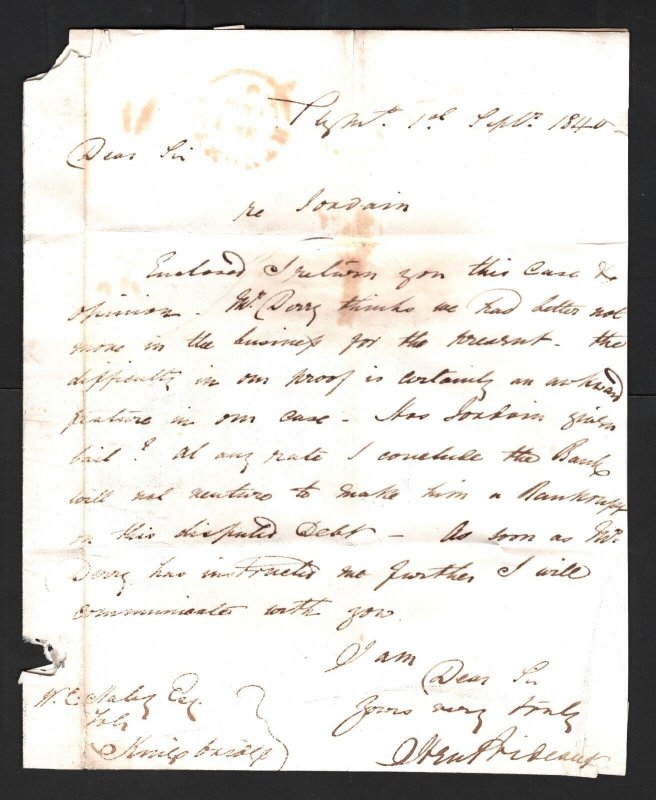 Plymo. 1st Septr. 1840
Dear Sir
re Jordain
Enclosed I return you this case &
opinion. Mr. Derry thinks we had better not
move in the business for the present - the
difficulty in our proof is certainly an awkward
feature in our case - Has Jordain given
bail? at any rate I conclude the Bank
will not venture to make him a Bankrupt
on this disputed Debt - As soon as Mr.
Derry has instructed me further I will
communicate with you.
I am
Dear Sir
Yours very truly
Henry Prideaux
W. E. Esq.
Solr
Kingsbridge